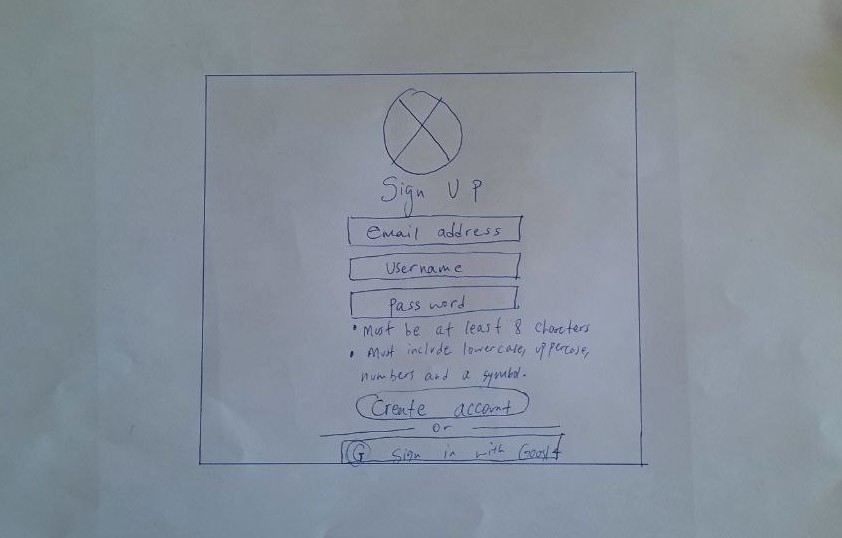 Sign UP
Email address
Username
Password
• Must be at least 8 charcters
• Must include lowercase, uppercase,
numbers and a symbol.
Create account
or
G Sign in with Google